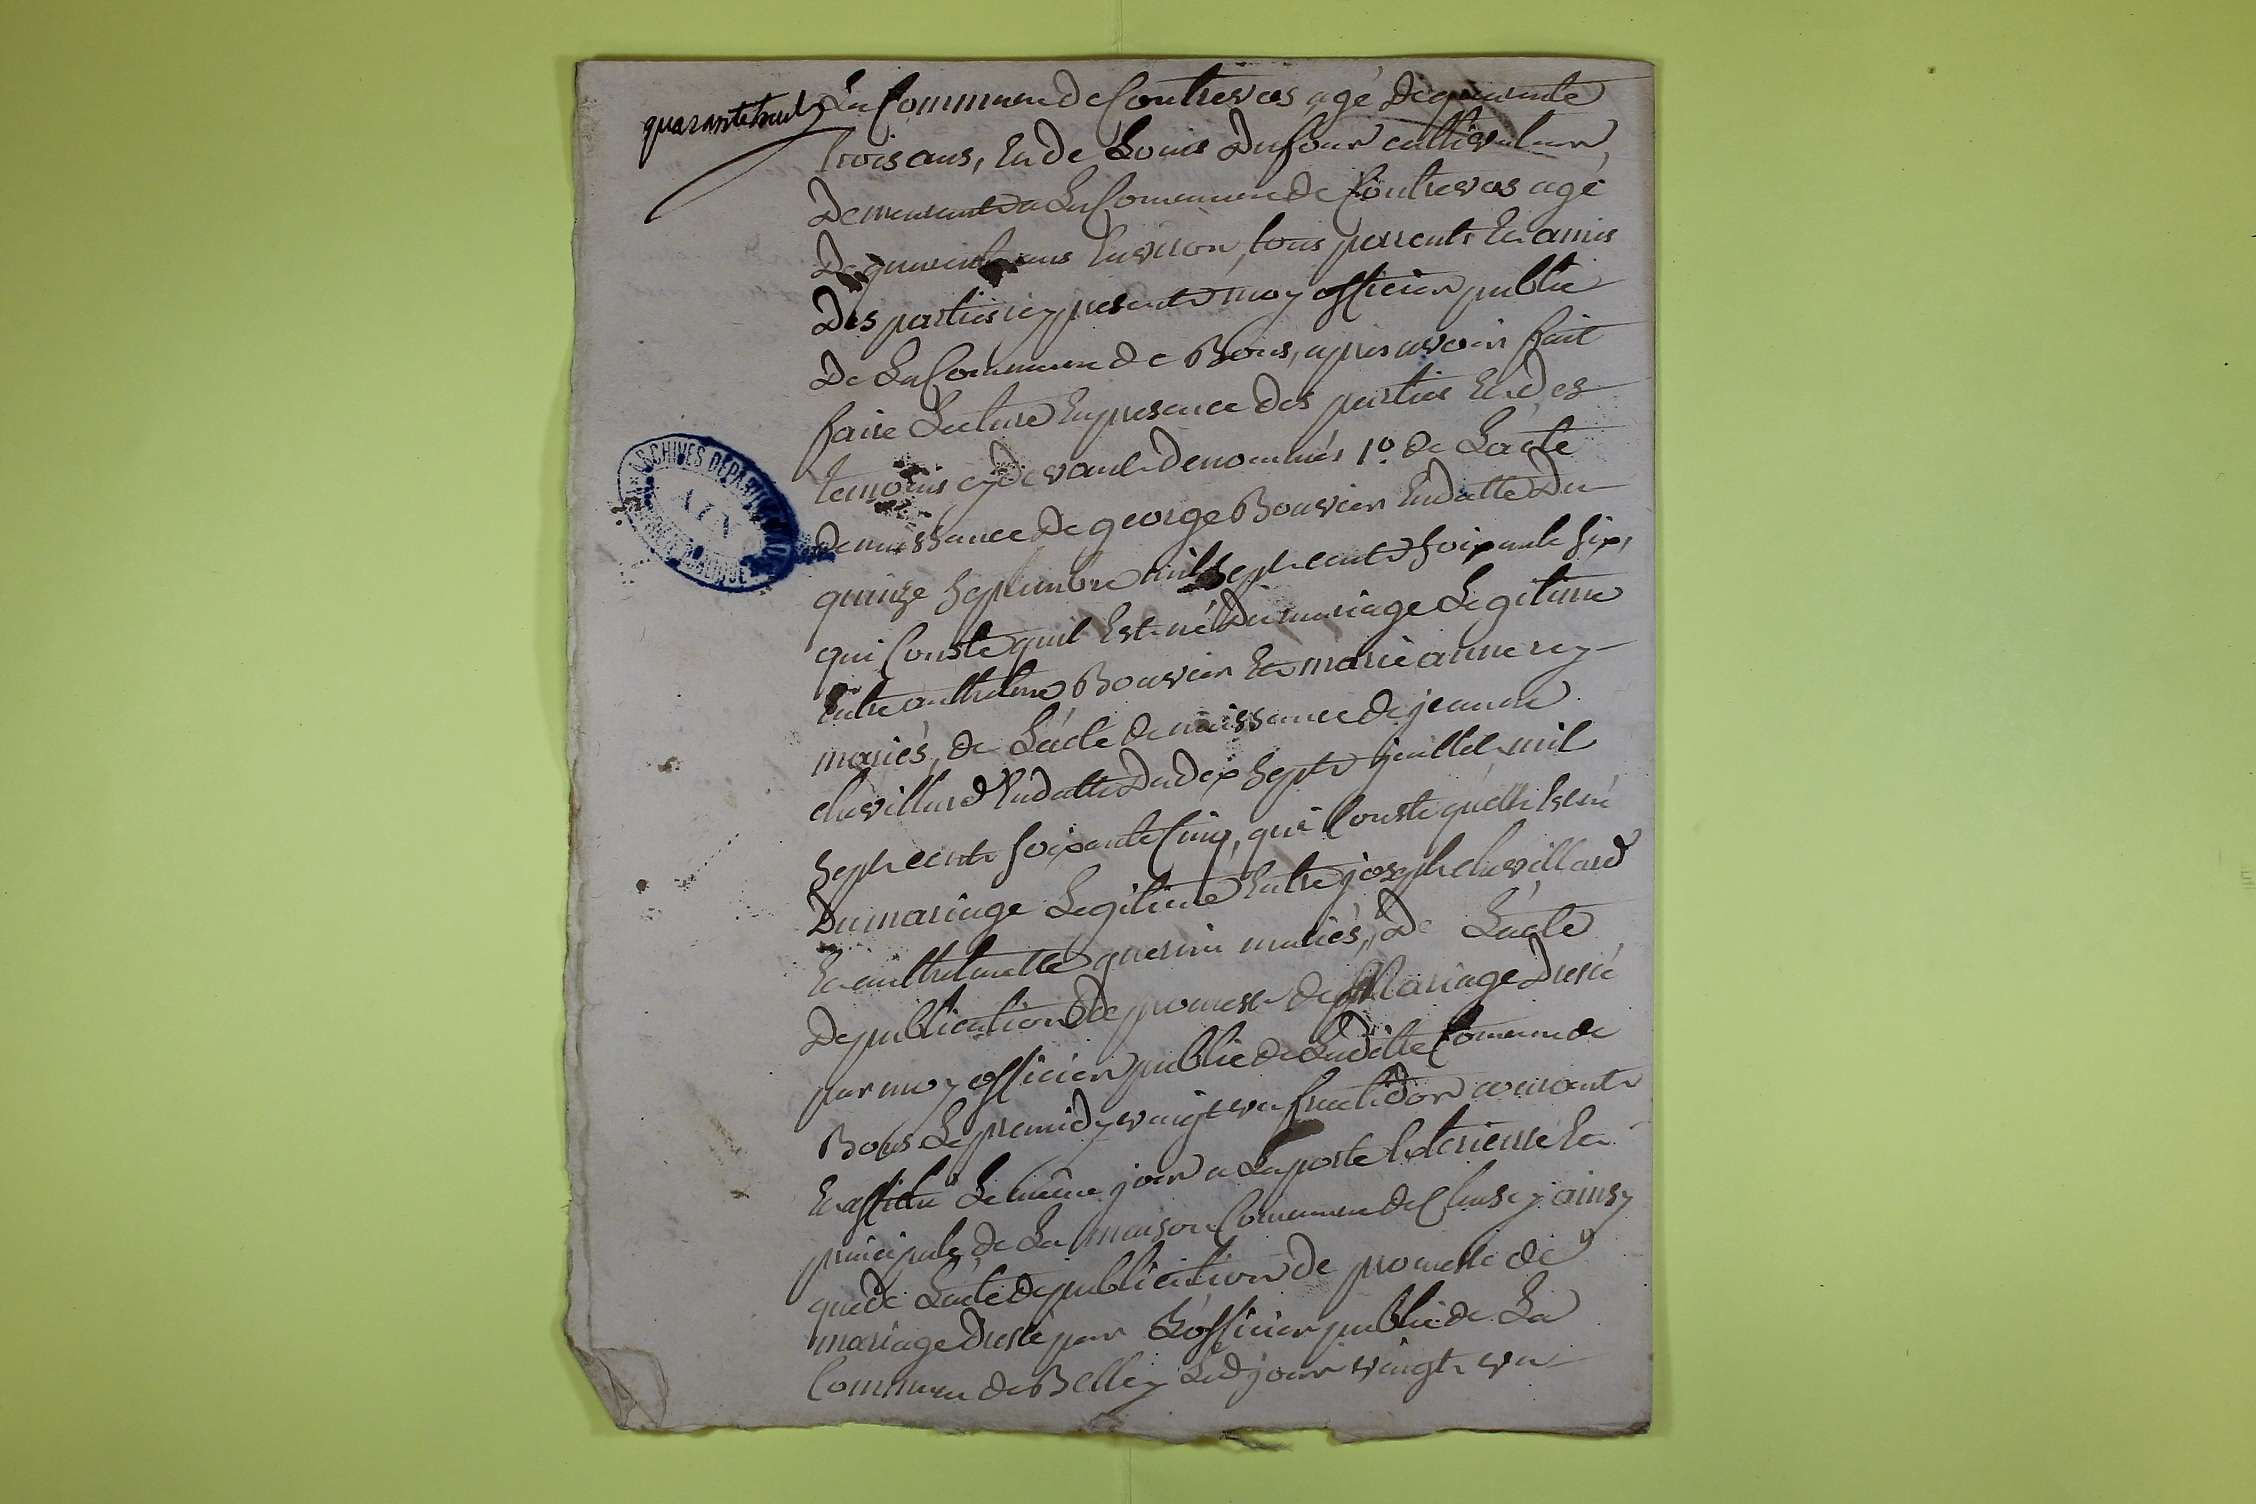 quarante huit
La Commune de Contrevos agé de quarante
trois ans, En de Louis Dufour cultivateur,
Demeurant a La Commune de Contrevos agé
De quarente ans Environ, tous parents En amis
Des parties icy present moy officier public
De La Commune de Bons, apres avoir fait
faire Lecture En presence des parties En des
temoins cy devant denommés 1.º de Lacte
De naissance de george Bouvier En datte du
quinze septembre mil sept cent soixante six,
qui Conste quil Est né du mariage Legitime
Entre anthelme Bouvier En marie anne rey
mariés, de Lacte de naissance de jeanne
chevillard En datte du dix sept juillet mil
sept cent soixante Cinq, qui Conste quelle Est né
Du mariage Legitime Entre joseph chevillard
En anthelmette guerin mariés, De Lacte
De publication de promesse de Mariage Dressé
par moy officier public de Laditte Commune de
Bons Le primidy vaingt un fructidor courant
En affiché Le même jour a La porte Exterieure En
principale de La maison Commune de Chasey ainsy
que de Lacte de publication de promesse de
mariage Dressé par L'officier public de La
Commune de Belley Led jour vaingt un
ARCHIVES DÉPARTEMENTALES
AIN